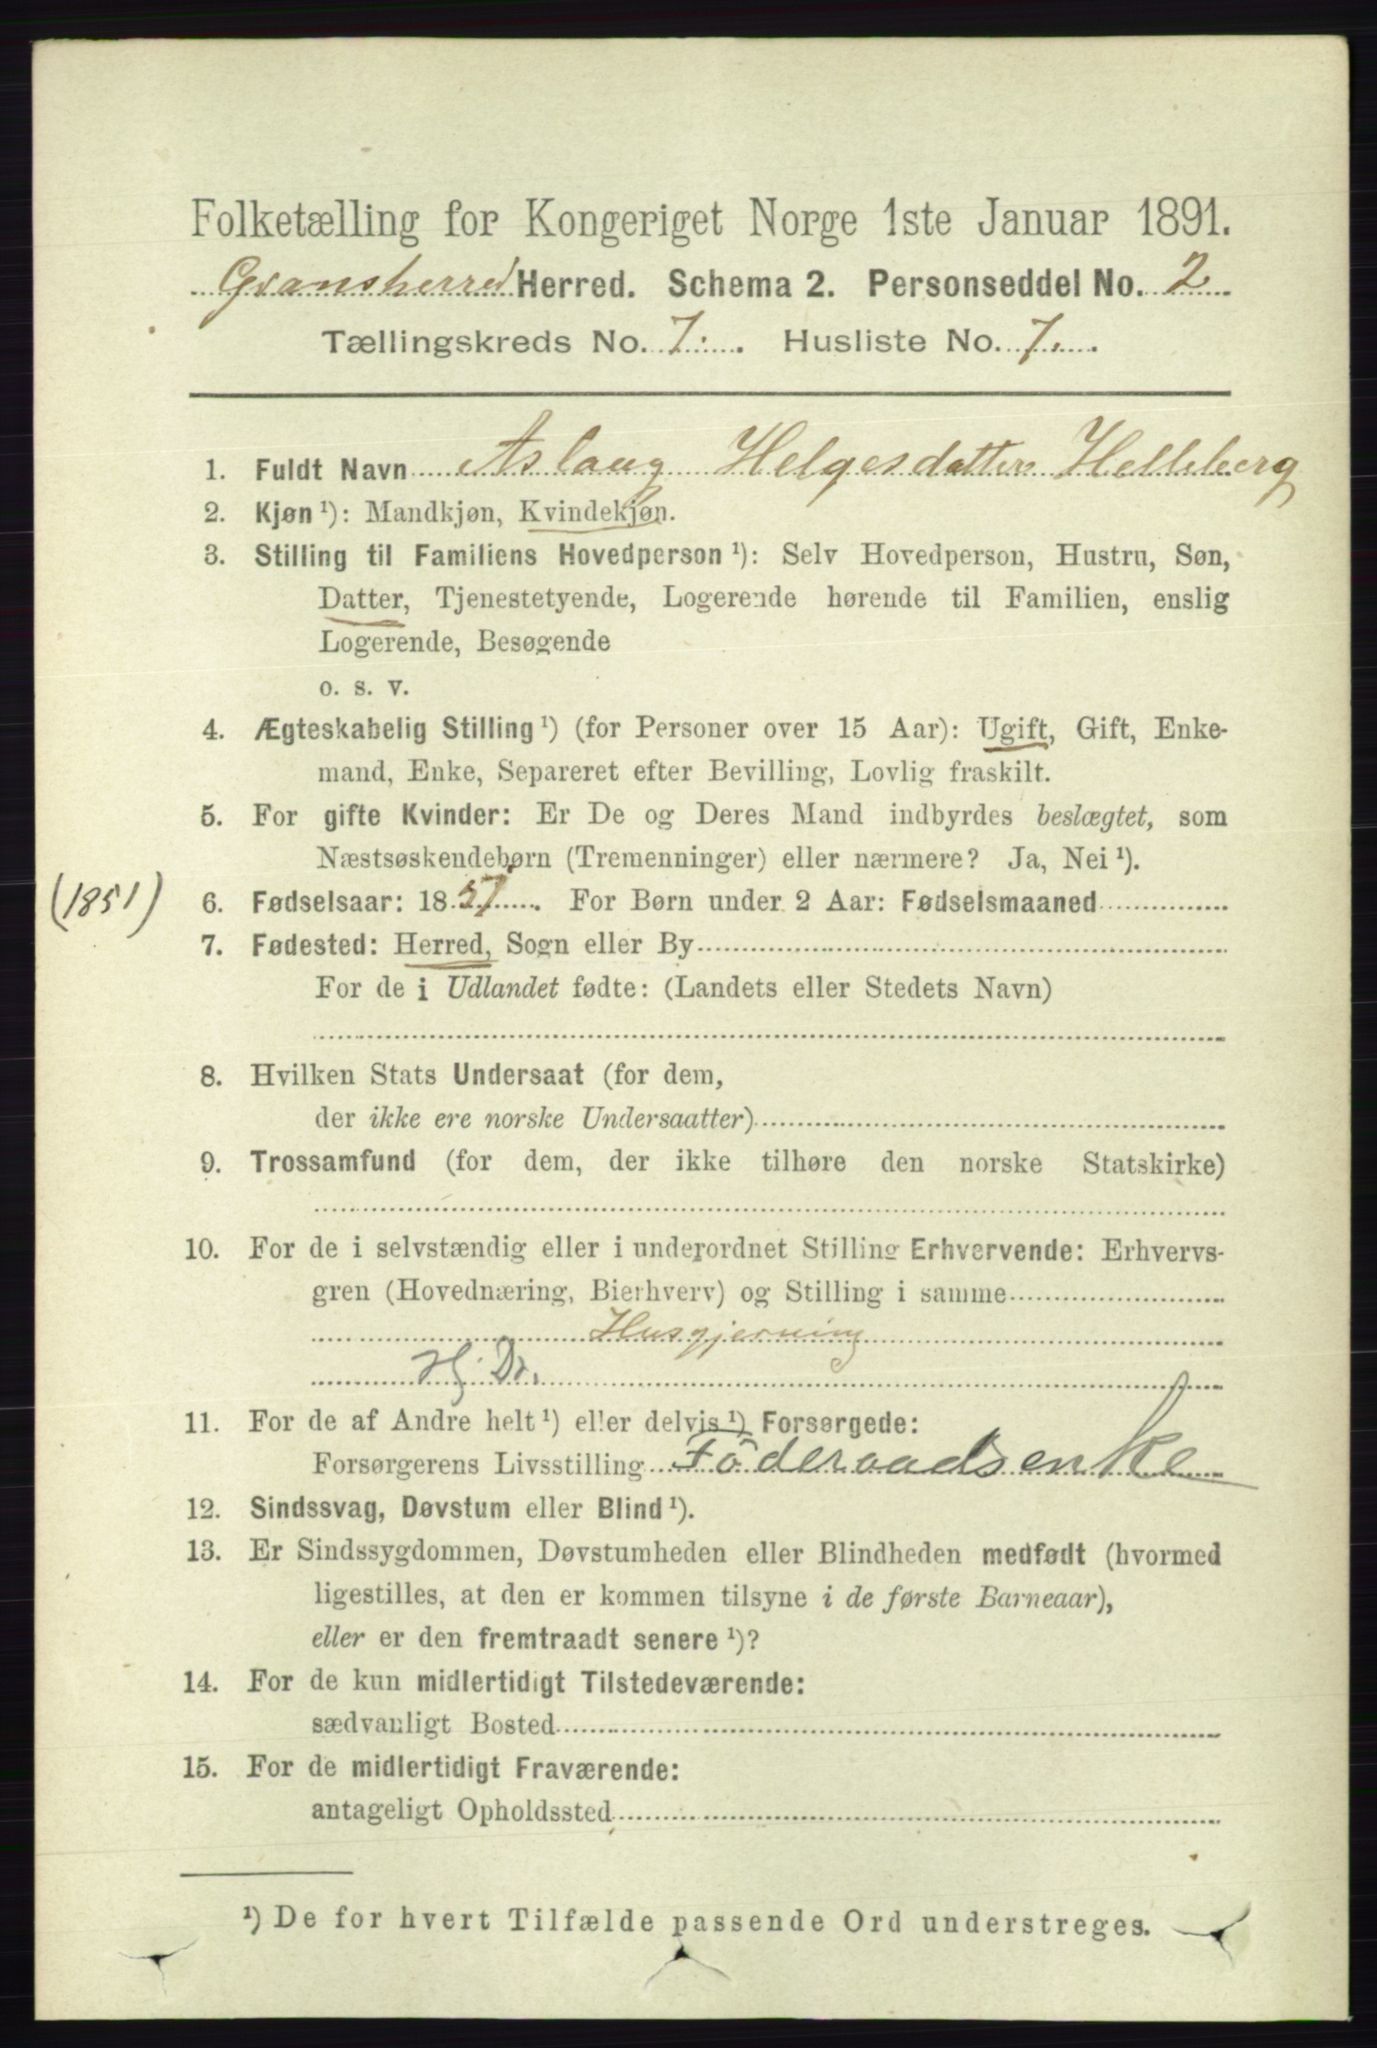 Folketælling for Kongeriget Norge 1ste Januar 1891.
Gransherred Herred. Schema 2. Personseddel No. 2
Tællingskreds No. 7. Husliste No. 7.
1. Fuldt Navn Aslaug Helgesdatter Helleberg
2. Kjøn ¹): Mandkjøn, Kvindekjøn.
3. Stilling til Familiens Hovedperson ¹): Selv Hovedperson, Hustru, Søn,
Datter, Tjenestetyende, Logerende hørende til Familien, enslig
Logerende, Besøgende
o. s. v.
4. Ægteskabelig Stilling ¹) (for Personer over 15 Aar): Ugift, Gift, Enke-
mand, Enke, Separeret efter Bevilling, Lovlig fraskilt.
5. For gifte Kvinder: Er De og Deres Mand indbyrdes beslægtet, som
Næstsøskendebørn (Tremenninger) eller nærmere? Ja, Nei ¹).
(1851) 6. Fødselsaar: 1851. For Børn under 2 Aar: Fødselsmaaned
7. Fødested: Herred, Sogn eller By
For de i Udlandet fødte: (Landets eller Stedets Navn)
8. Hvilken Stats Undersaat (for dem,
der ikke ere norske Undersaatter)
9. Trossamfund (for dem, der ikke tilhøre den norske Statskirke)
10. For de i selvstændig eller i underordnet Stilling Erhvervende: Erhvervs-
gren (Hovednæring, Bierhverv) og Stilling i samme
Husgjerning
Hj. Dr.
11. For de af Andre helt ¹) eller delvis ¹) Forsørgede:
Forsørgerens Livsstilling Föderaadsenke
12. Sindssvag, Døvstum eller Blind ¹).
13. Er Sindssygdommen, Døvstumheden eller Blindheden medfødt (hvormed
ligestilles, at den er kommen tilsyne i de første Barneaar),
eller er den fremtraadt senere ¹)?
14. For de kun midlertidigt Tilstedeværende:
sædvanligt Bosted
15. For de midlertidigt Fraværende:
antageligt Opholdssted
¹) De for hvert Tilfælde passende Ord understreges.